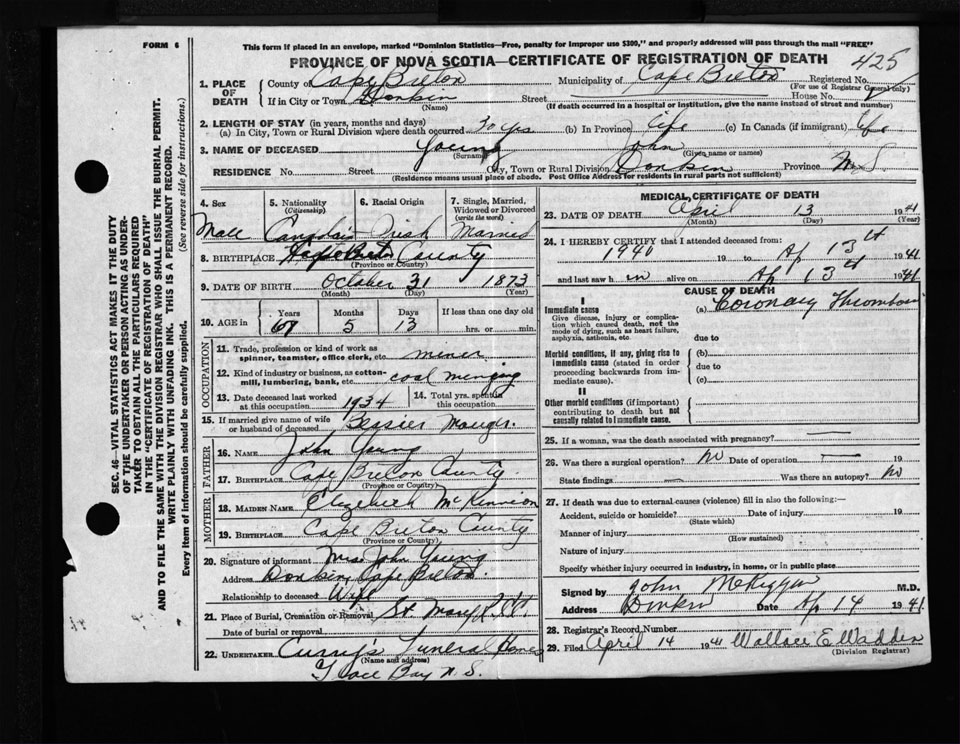 FORM 6
This form if placed in an envelope, marked "Dominion Statistics—Free, penalty for improper use $300," and properly addressed will pass through the mail "FREE"
PROVINCE OF NOVA SCOTIA—CERTIFICATE OF REGISTRATION OF DEATH
425
1. PLACE OF DEATH
County of Cape Breton Municipality of Cape Breton Registered No.
(For use of Registrar General only)
If in City or Town Donkin Street House No.
(Name) (If death occurred in a hospital or institution, give the name instead of street and number)
2. LENGTH OF STAY (in years, months and days)
(a) In City, Town or Rural Division where death occurred 30 yrs (b) In Province Life (c) In Canada (if immigrant) Life
3. NAME OF DECEASED Young John
(Surname) (Given name or names)
RESIDENCE No. Street City, Town or Rural Division Donkin Province N.S.
(Residence means usual place of abode. Post Office Address for residents rural parts not sufficient)
4. Sex
Male
5. Nationality
(Citizenship)
Canadian
6. Racial Origin
Irish
7. Single, Married, Widowed or Divorced
(write the word)
Married
8. BIRTHPLACE Cape Breton County
(Province or Country)
9. DATE OF BIRTH October 31 1873
(Month) (Day) (Year)
10. AGE in
Years Months Days If less than one day old
67 5 13 hrs. or min.
OCCUPATION
11. Trade, profession or kind of work as spinner, teamster, office clerk, etc. miner
12. Kind of industry or business, as cotton-mill, lumbering, bank, etc. coal
13. Date deceased last worked at this occupation 1934
14. Total yrs. spent in this occupation
15. If married give name of wife or husband of deceased Bessie
FATHER
16. NAME John Young
17. BIRTHPLACE Cape Breton County
(Province or Country)
MOTHER
18. MAIDEN NAME Elizabeth McKinnion
19. BIRTHPLACE Cape Breton County
(Province or Country)
20. Signature of informant Mrs John Young
Address Donkin Cape Breton.
Relationship to deceased Wife
21. Place of Burial, Cremation or Removal St. Mary
Date of burial or removal
22. UNDERTAKER Curry's Funeral Home
(Name and address)
Glace Bay N.S.
MEDICAL CERTIFICATE OF DEATH
23. DATE OF DEATH April 13 1941
(Month) (Day) (Year)
24. I HEREBY CERTIFY that I attended deceased from:
1940 19 to Ap 13th 1941
and last saw h im alive on Ap 13th 1941
CAUSE OF DEATH
I
Immediate cause
Give disease, injury or complication which caused death, not the mode of dying, such as heart failure, asphyxia, asthenia, etc.
(a) Coronary Thrombosis
due to
Morbid conditions, if any, giving rise to immediate cause (stated in order proceeding backwards from immediate cause).
(b)
due to
(c)
II
Other morbid conditions (if important) contributing to death but not causally related to immediate cause.
25. If a woman, was the death associated with pregnancy?
26. Was there a surgical operation? no Date of operation 19
State findings Was there an autopsy? no
27. If death was due to external causes (violence) fill in also the following:—
Accident, suicide or homicide? Date of injury 19
(State which)
Manner of injury
(How sustained)
Nature of injury
Specify whether injury occurred in industry, in home, or in public place
Signed by John McKiggan M.D.
Address Donkin Date Ap 14 1941
28. Registrar's Record Number
29. Filed April 14 1941 Wallace E Wadden
(Division Registrar)
SEC. 46—VITAL STATISTICS ACT MAKES IT THE DUTY OF THE UNDERTAKER OR PERSON ACTING AS UNDERTAKER TO OBTAIN ALL THE PARTICULARS REQUIRED IN THE "CERTIFICATE OF REGISTRATION OF DEATH"
AND TO FILE THE SAME WITH THE DIVISION REGISTRAR WHO SHALL ISSUE THE BURIAL PERMIT.
WRITE PLAINLY WITH UNFADING INK. THIS IS A PERMANENT RECORD.
Every item of information should be carefully supplied. (See reverse side for instructions.)